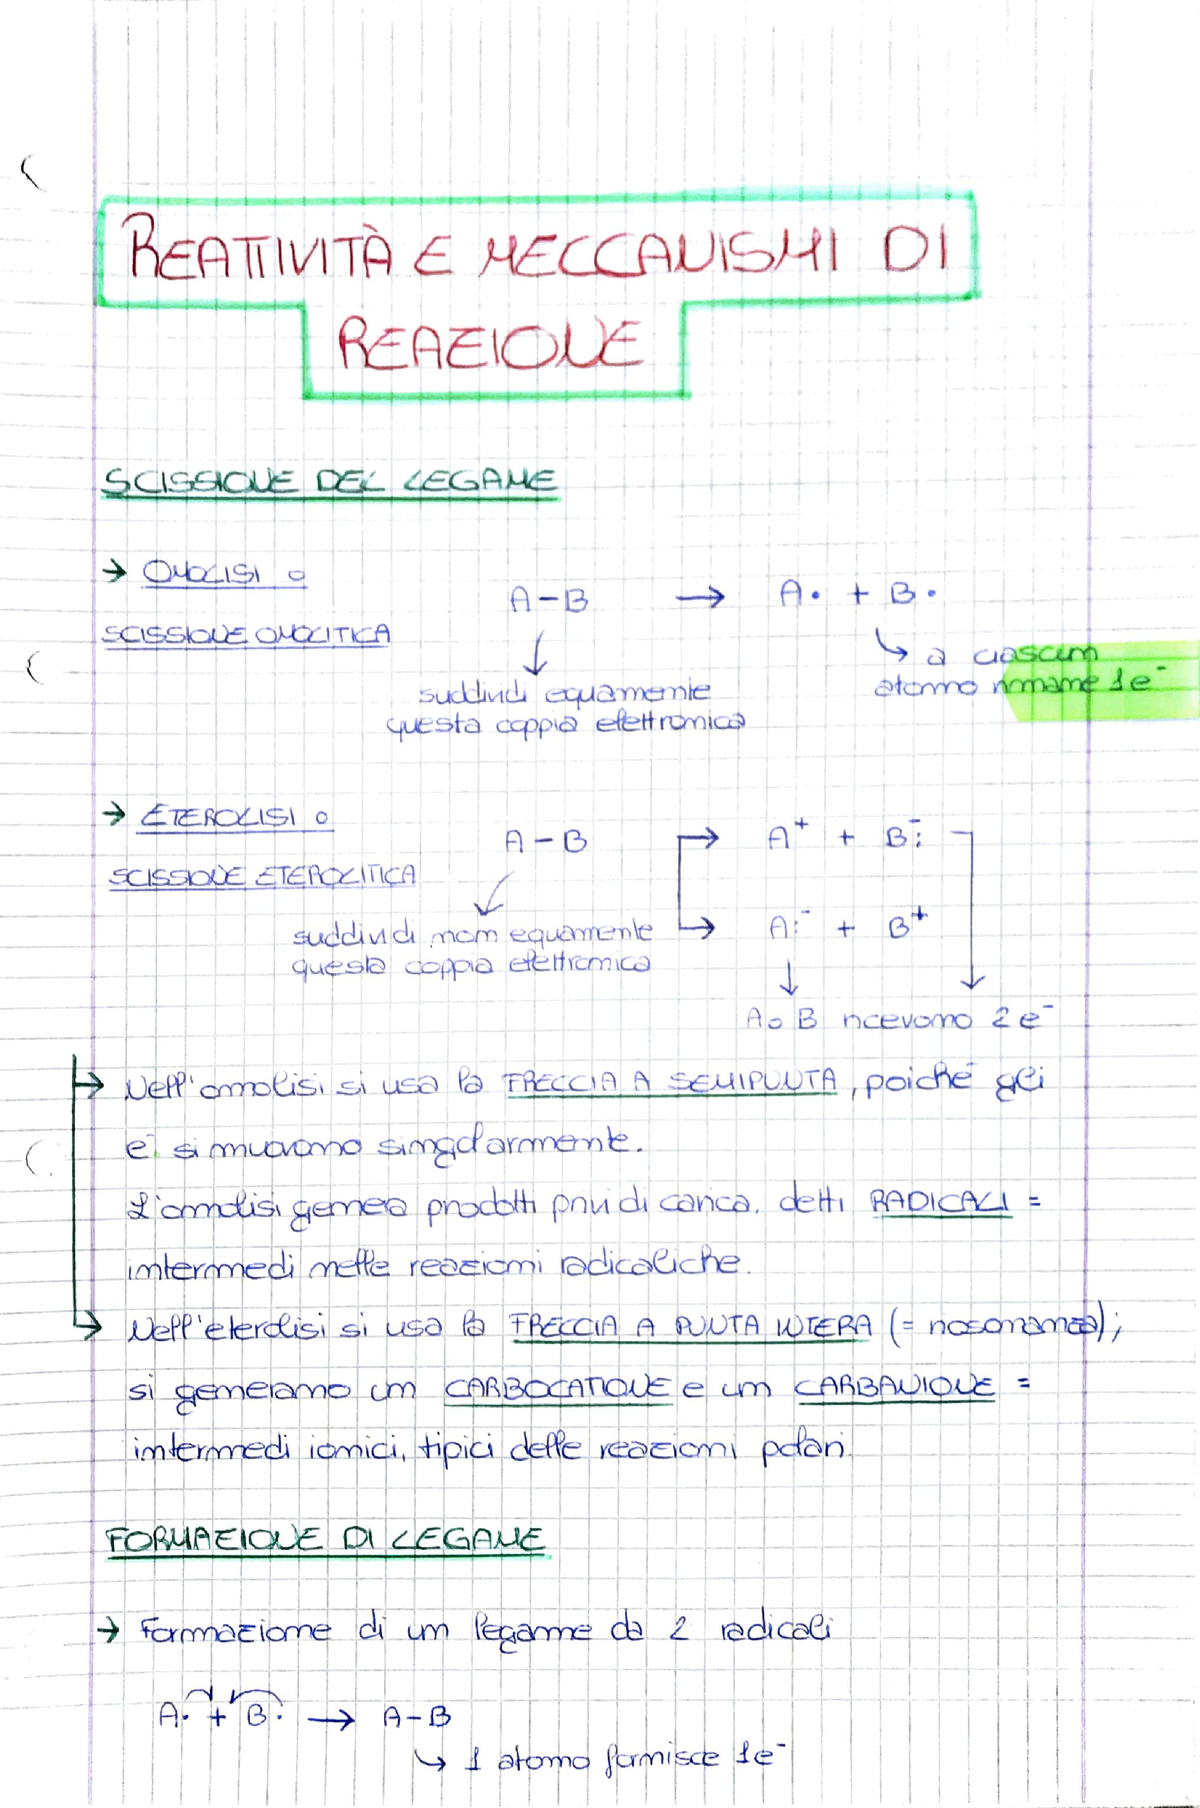 REATTIVITÀ E MECCANISMI DI
REAZIONE
SCISSIONE DEL LEGAME
→ OMOLISI o
SCISSIONE OMOLITICA
A-B → A• + B•
↓
suddividi equamente
questa coppia elettronica
↳ a ciascun
atomo rimane 1e⁻
→ ETEROLISI o
SCISSIONE ETEROLITICA
A-B → A⁺ + B:⁻
→ A:⁻ + B⁺
suddividi non equamente
questa coppia elettronica
A o B ricevono 2e⁻
→ Nell'omolisi si usa la FRECCIA A SEMIPUNTA, poiché gli
e⁻ si muovono singolarmente.
L'omolisi genera prodotti privi di carica, detti RADICALI =
intermedi nelle reazioni radicaliche.
→ Nell'eterolisi si usa la FRECCIA A PUNTA INTERA (= risonanza);
si generano un CARBOCATIONE e un CARBANIONE =
intermedi ionici, tipici delle reazioni polari.
FORMAZIONE DI LEGAME
→ Formazione di un legame da 2 radicali
A• + B• → A-B
↳ 1 atomo fornisce 1e⁻